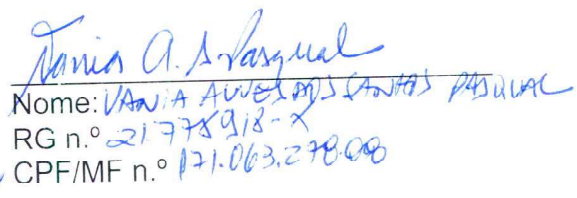 Vania A. S. Pasqual
Nome: VANIA ALVES DOS SANTOS PASQUAL
RG n.º 21778918-X
CPF/MF n.º 171.063.278.08